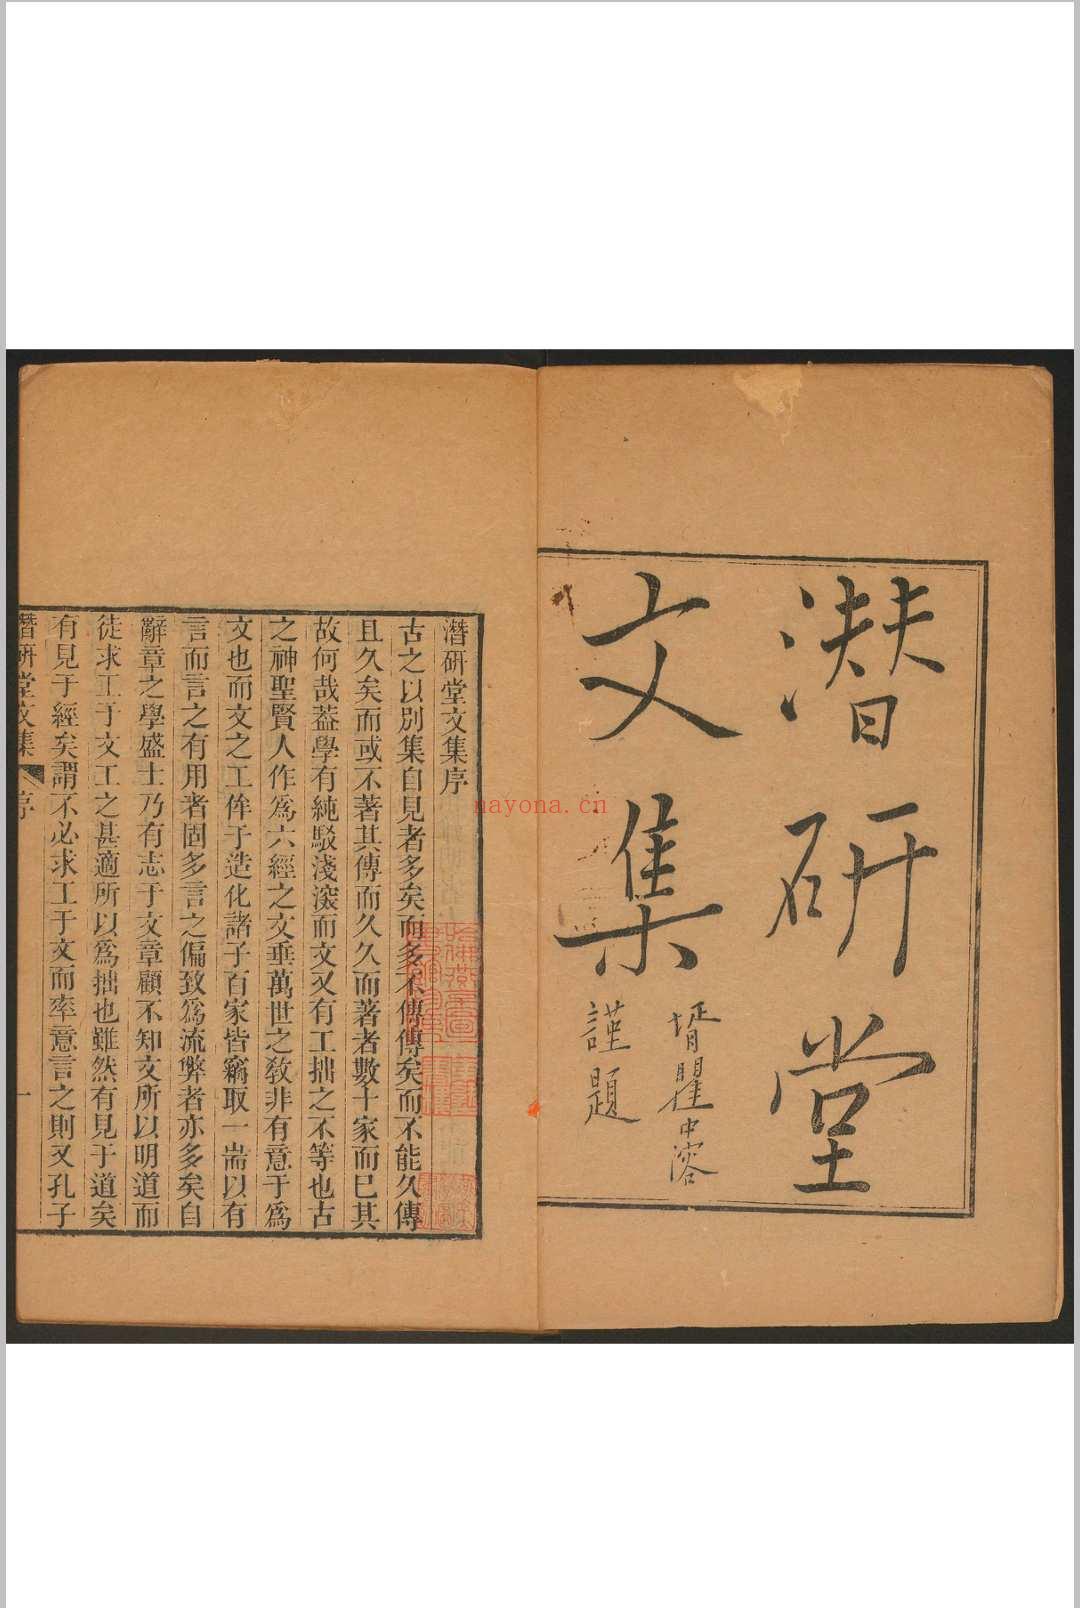 潛研堂
文集
壻瞿中溶
謹題
nayona.cn
潛研堂文集序
古之以別集自見者多矣而多不傳傳矣而不能久傳
且久矣而或不著其傳而久久而著者數十家而已其
故何哉葢學有純駁淺深而文又有工拙之不等也古
之神聖賢人作爲六經之文垂萬世之敎非有意于爲
文也而文之工侔于造化諸子百家皆竊取一耑以有
言而言之有用者固多言之偏致爲流弊者亦多矣自
辭章之學盛士乃有志于文章顧不知文所以明道而
徒求工于文工之甚適所以爲拙也雖然有見于道矣
有見于經矣謂不必求工于文而率意言之則又孔子
潛研堂文集 序 一